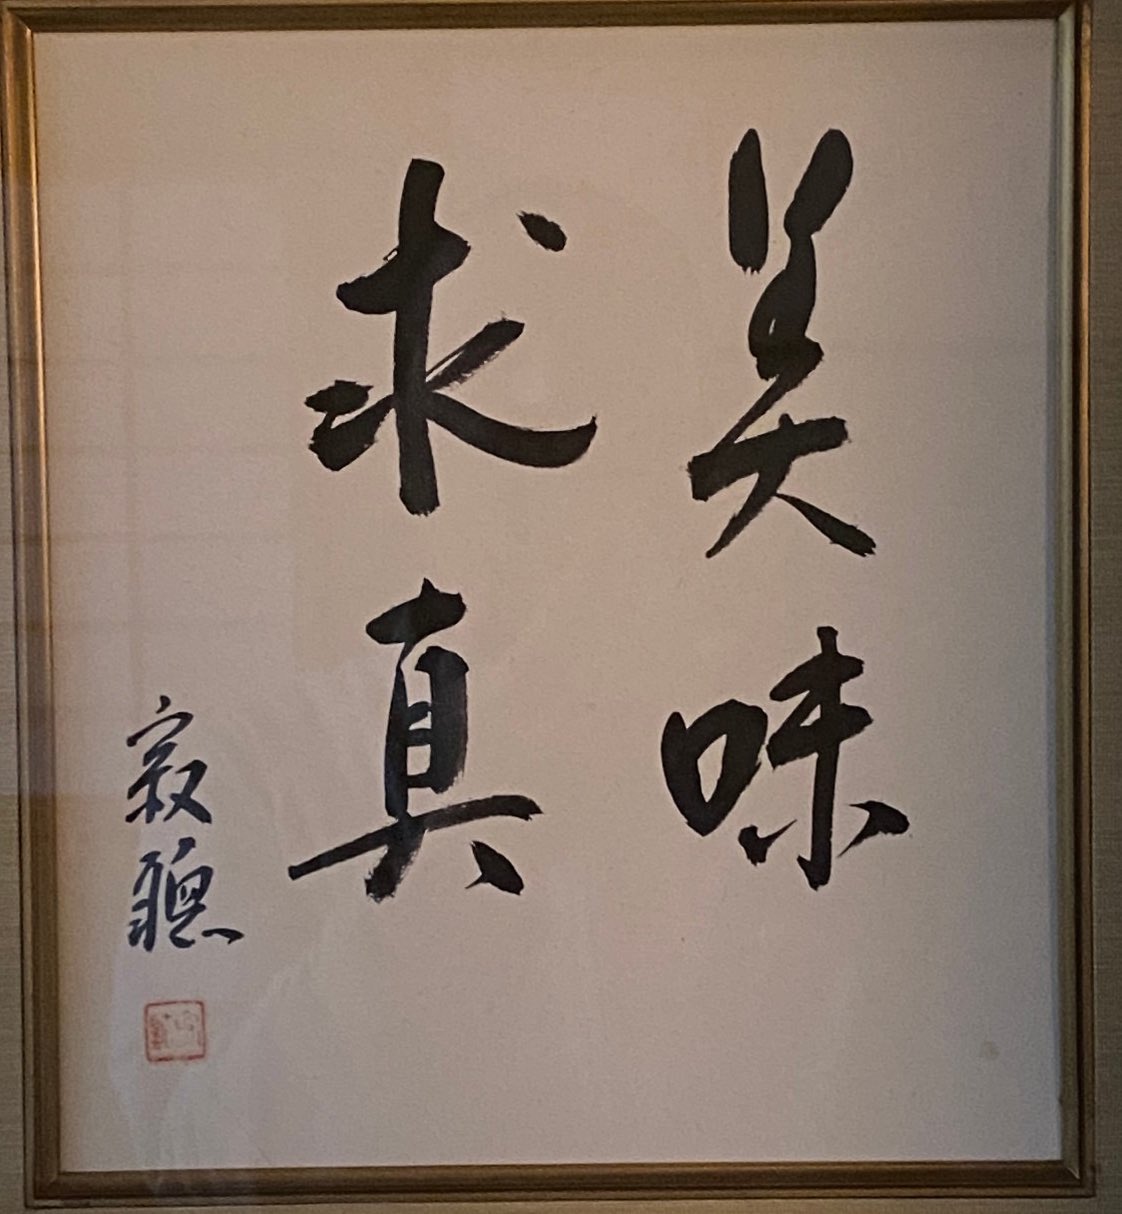 美味
求真
寂聴